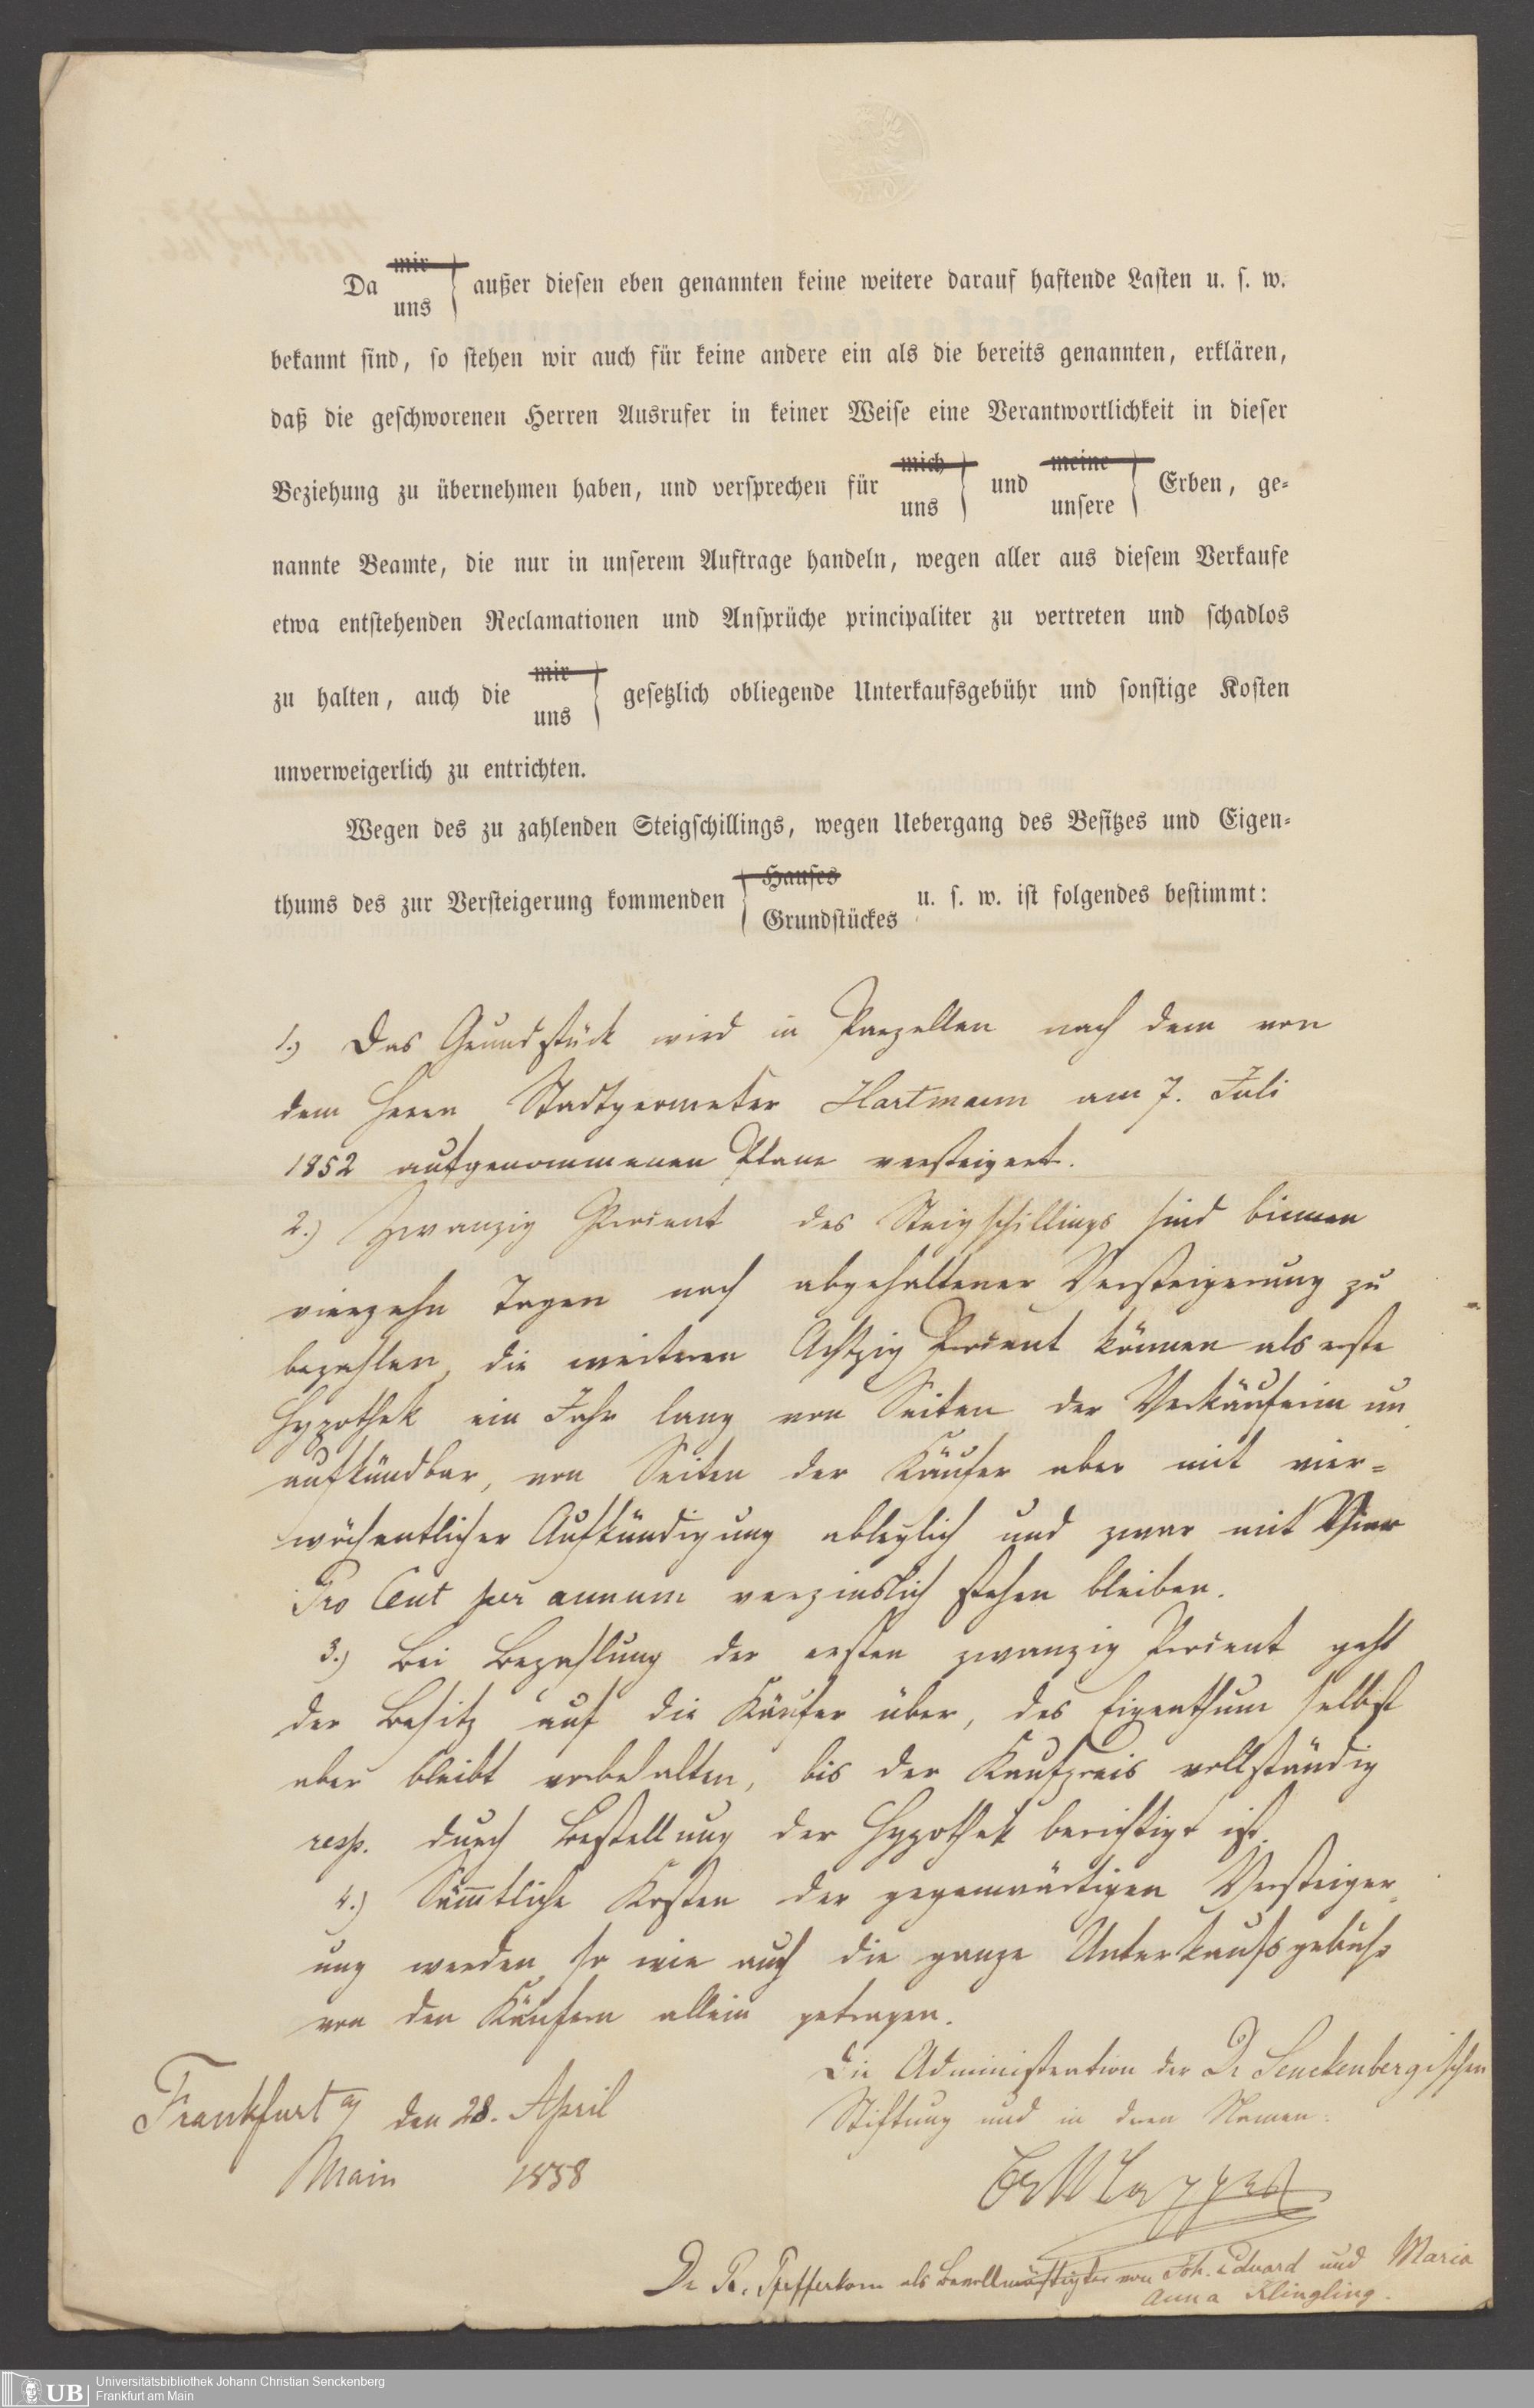 Da mir uns außer diesen eben genannten keine weitere darauf haftende Lasten u. s. w.
bekannt sind, so stehen wir auch für keine andere ein als die bereits genannten, erklären,
daß die geschworenen Herren Ausrufer in keiner Weise eine Verantwortlichkeit in dieser
Beziehung zu übernehmen haben, und versprechen für mich uns und meine unsere Erben, ge-
nannte Beamte, die nur in unserem Auftrage handeln, wegen aller aus diesem Verkaufe
etwa entstehenden Reclamationen und Ansprüche principaliter zu vertreten und schadlos
zu halten, auch die mir uns gesetzlich obliegende Unterkaufsgebühr und sonstige Kosten
unverweigerlich zu entrichten.
Wegen des zu zahlenden Steigschillings, wegen Uebergang des Besitzes und Eigen-
thums des zur Versteigerung kommenden Hauses Grundstückes u. s. w. ist folgendes bestimmt:
1.) Das Grundstück wird in Parzellen nach dem von
dem Herrn Stadtgeometer Hartmann am 7. Juli
1852 aufgenommenen Plane versteigert.
2.) Zwanzig Procent des Steigschillings sind binnen
vierzehn Tagen nach abgehaltener Versteigerung zu
bezahlen, die weiteren Achtzig Procent können als erste
Hypothek ein Jahr lang von Seiten der Verkäuferin un
aufkündbar, von Seiten der Käufer aber mit vier-
wöchentlicher Aufkündigung ableglich und zwar mit Vier
Pro Cent per annum verzinslich stehen bleiben.
3.) Bei Bezahlung der ersten zwanzig Procent geht
der Besitz auf die Käufer über, das Eigenthum selbst
aber bleibt vorbehalten, bis der Kaufpreis vollständig
resp. durch Bestellung der Hypothek berichtigt ist.
4.) Sämmtliche Kosten der gegenwärtigen Versteiger-
ung werden so wie auch die ganze Unterkaufsgebühr
von den Käufern allein getragen.
Die Administration der Dr Senckenbergischen
Stiftung und in deren Namen:
Frankfurt a/ den 28. April
Main 1858
Dr R. Pfefferkorn als Bevollmächtigter von Joh. Eduard und Maria
Anna Klingling.
Universitätsbibliothek Johann Christian Senckenberg
Frankfurt am Main
UB